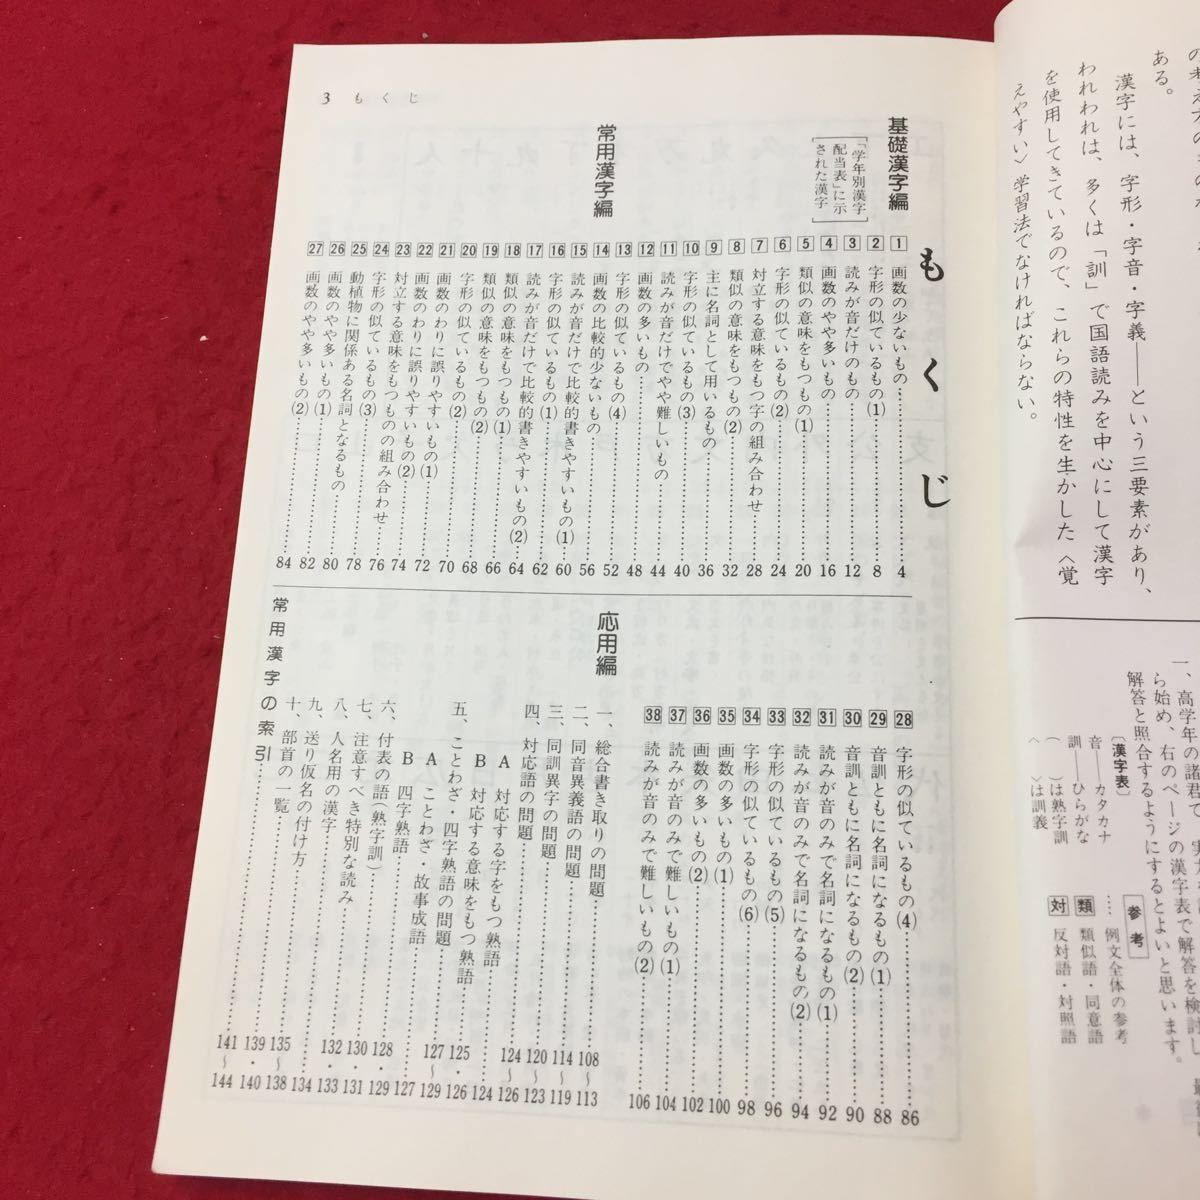 の考え方の
ある。
漢字には、字形・字音・字義――という三要素があり、
われわれは、多くは「訓」で国語読みを中心にして漢字
を使用してきているので、これらの特性を生かした〈覚
えやすい〉学習法でなければならない。
一、高学年の諸君で
ら始め、右のページの漢字表で解答を検討し
解答と照合するようにするとよいと思います。
〔漢字表〕
音――カタカナ
訓――ひらがな
( )は熟字訓
〈 〉は訓義
参考
……例文全体の参考
類 類似語・同意語
対 反対語・対照語
3 もくじ
もくじ
基礎漢字編
「学年別漢字
配当表」に示
された漢字
1 画数の少ないもの……4
2 字形の似ているもの(1)……8
3 読みが音だけのもの……12
4 画数のやや多いもの……16
5 類似の意味をもつもの(1)……20
6 字形の似ているもの(2)……24
7 対立する意味をもつ字の組み合わせ……28
8 類似の意味をもつもの(2)……32
9 主に名詞として用いるもの……36
10 字形の似ているもの(3)……40
11 読みが音だけでやや難しいもの……44
12 画数の多いもの……48
13 字形の似ているもの(4)……52
常用漢字編
14 画数の比較的少ないもの……56
15 読みが音だけで比較的書きやすいもの(1)……60
16 字形の似ているもの(1)……62
17 読みが音だけで比較的書きやすいもの(2)……64
18 類似の意味をもつもの(1)……66
19 類似の意味をもつもの(2)……68
20 字形の似ているもの(2)……70
21 画数のわりに誤りやすいもの(1)……72
22 画数のわりに誤りやすいもの(2)……74
23 対立する意味をもつものの組み合わせ……76
24 字形の似ているもの(3)……78
25 動植物に関係ある名詞となるもの……80
26 画数のやや多いもの(1)……82
27 画数のやや多いもの(2)……84
28 字形の似ているもの(4)……86
29 音訓ともに名詞になるもの(1)……88
30 音訓ともに名詞になるもの(2)……90
31 読みが音のみで名詞になるもの(1)……92
32 読みが音のみで名詞になるもの(2)……94
33 字形の似ているもの(5)……96
34 字形の似ているもの(6)……98
35 画数の多いもの(1)……100
36 画数の多いもの(2)……102
37 読みが音のみで難しいもの(1)……104
38 読みが音のみで難しいもの(2)……106
応用編
一、総合書き取りの問題……108〜113
二、同音異義語の問題……114〜119
三、同訓異字の問題……120〜123
四、対応語の問題……124〜126
A 対応する字をもつ熟語……124
B 対応する意味をもつ熟語……125・126
五、ことわざ・四字熟語の問題……127〜129
A ことわざ・故事成語……127
B 四字熟語……128・129
六、付表の語(熟字訓)……130・131
七、注意すべき特別な読み……132・133
八、人名用の漢字……134
九、送り仮名の付け方……135〜138
十、部首の一覧……139・140
常用漢字の索引……141〜144